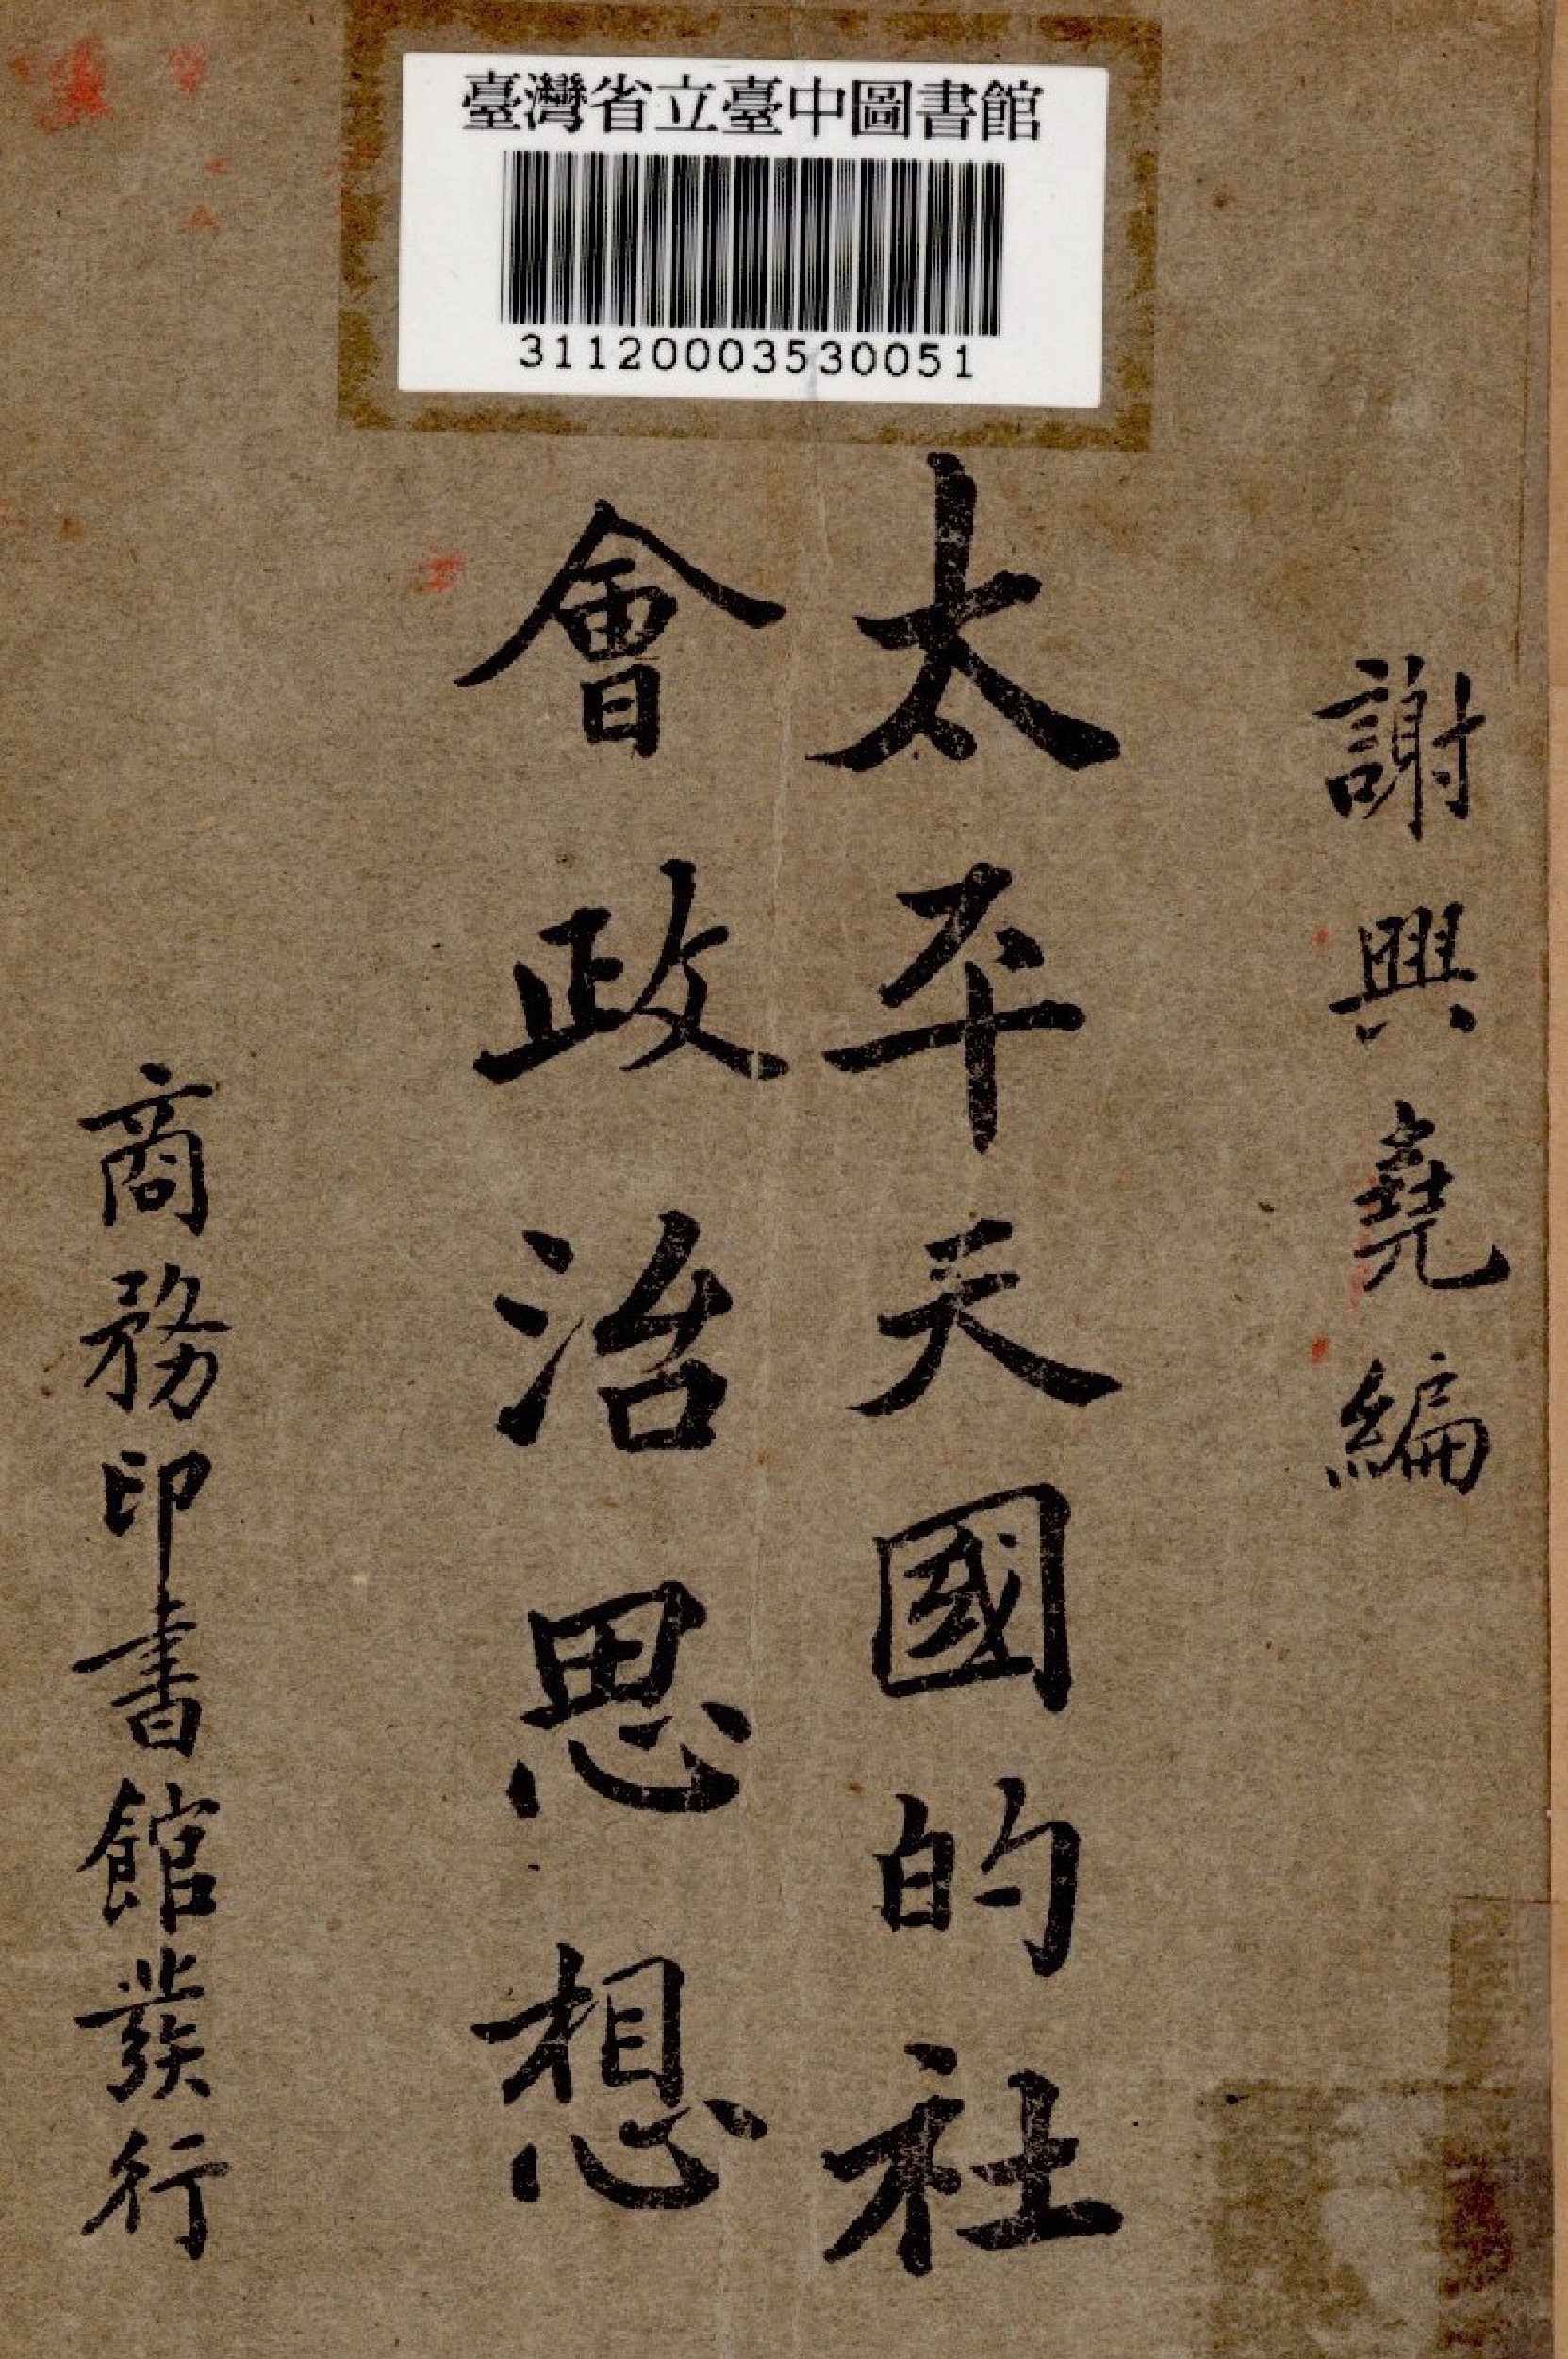 臺灣省立臺中圖書館
31120003530051
謝興堯編
太平天國的社
會政治思想
商務印書館發行